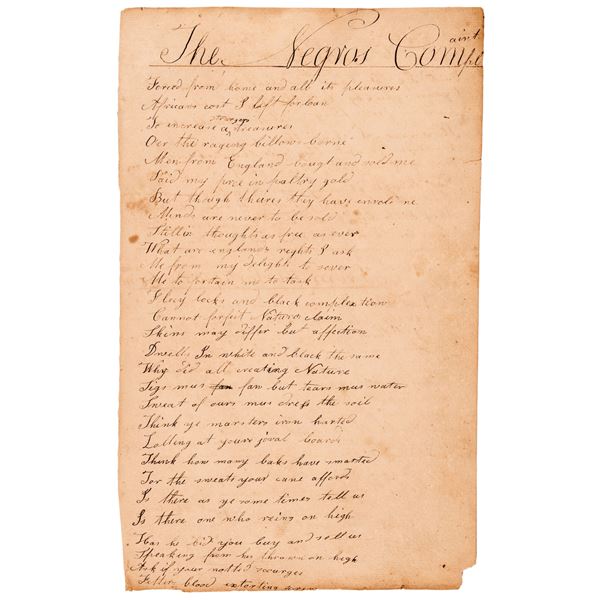 The Negros Complaint
Forced from home and all its pleasures
Africans cost I left forloan
To increase a strangers treasures
Oer the rageing billows borne
Men from England bougt and sold me
Paid my price in paltry gold
But though theires they have enrold me
Minds are never to be sold
Still in thoughts as free as ever
What are englands reghts I ask
Me from my delights to sever
Me to fortain me to task
Fleey locks and black complextion
Cannot forfeit Naturs claim
Skins may differ but affection
Dwells In white and black the same
Why did all creating Nuture
figs mus fan but tears mus water
Sweat of ours mus dress the soil
Think ye marsters iron harted
Lolling at yours joval boards
Think how many baks have smarted
For the sweats your cane affords
Is there as ye some times tell us
Is there one who reins on high
Has he bid you buy and sell us
Speaking from his thrown on high
Ask if your notted scourges
blood extorting